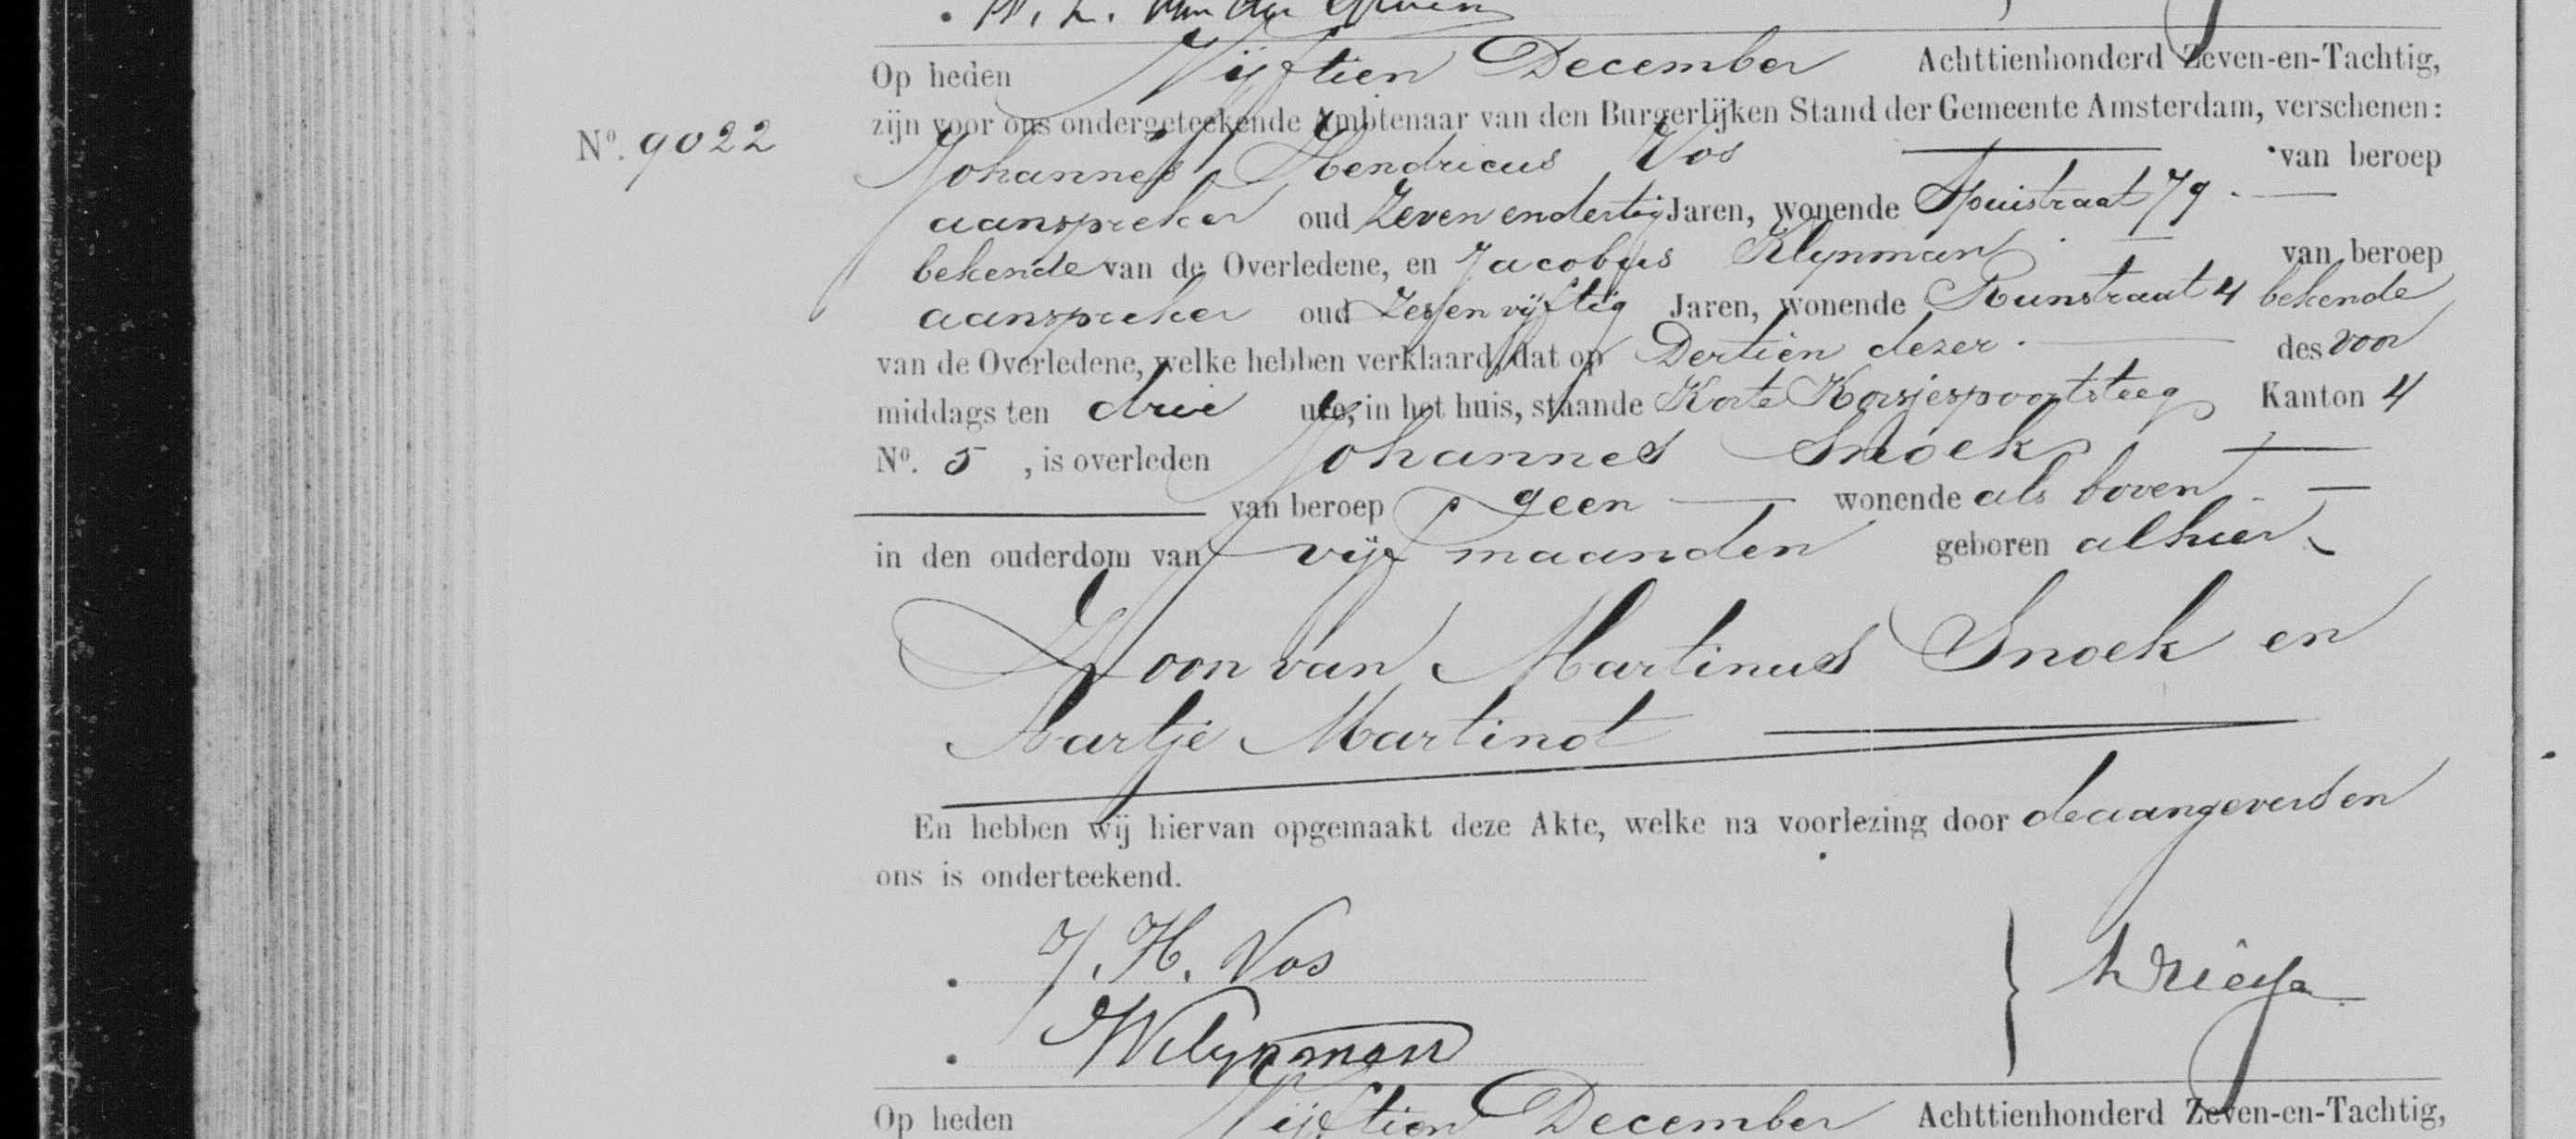 Op heden Vijftien December Achttienhonderd Zeven-en-Tachtig,
zijn voor ons ondergeteekende Ambtenaar van den Burgerlijken Stand der Gemeente Amsterdam, verschenen:
No. 9022
Johannes Hendricus Vos van beroep
aanspreker oud Zeven en dertig Jaren, wonende Spuistraat 79.
bekende van de Overledene, en Jacobus Klynman van beroep
aanspreker oud Zes en vijftig Jaren, wonende Runstraat 4 bekende
van de Overledene, welke hebben verklaard, dat op Dertien dezer des voor
middags ten drie ure, in het huis, staande Korte Korsjespoortsteeg Kanton 4
No. 5, is overleden Johannes Snoek
van beroep geen wonende als boven
in den ouderdom van vijf maanden geboren alhier
Zoon van Martinus Snoek en
Aartje Martinot
En hebben wij hiervan opgemaakt deze Akte, welke na voorlezing door de aangevers en
ons is onderteekend.
J. H. Vos
Op heden Vijftien December Achttienhonderd Zeven-en-Tachtig,